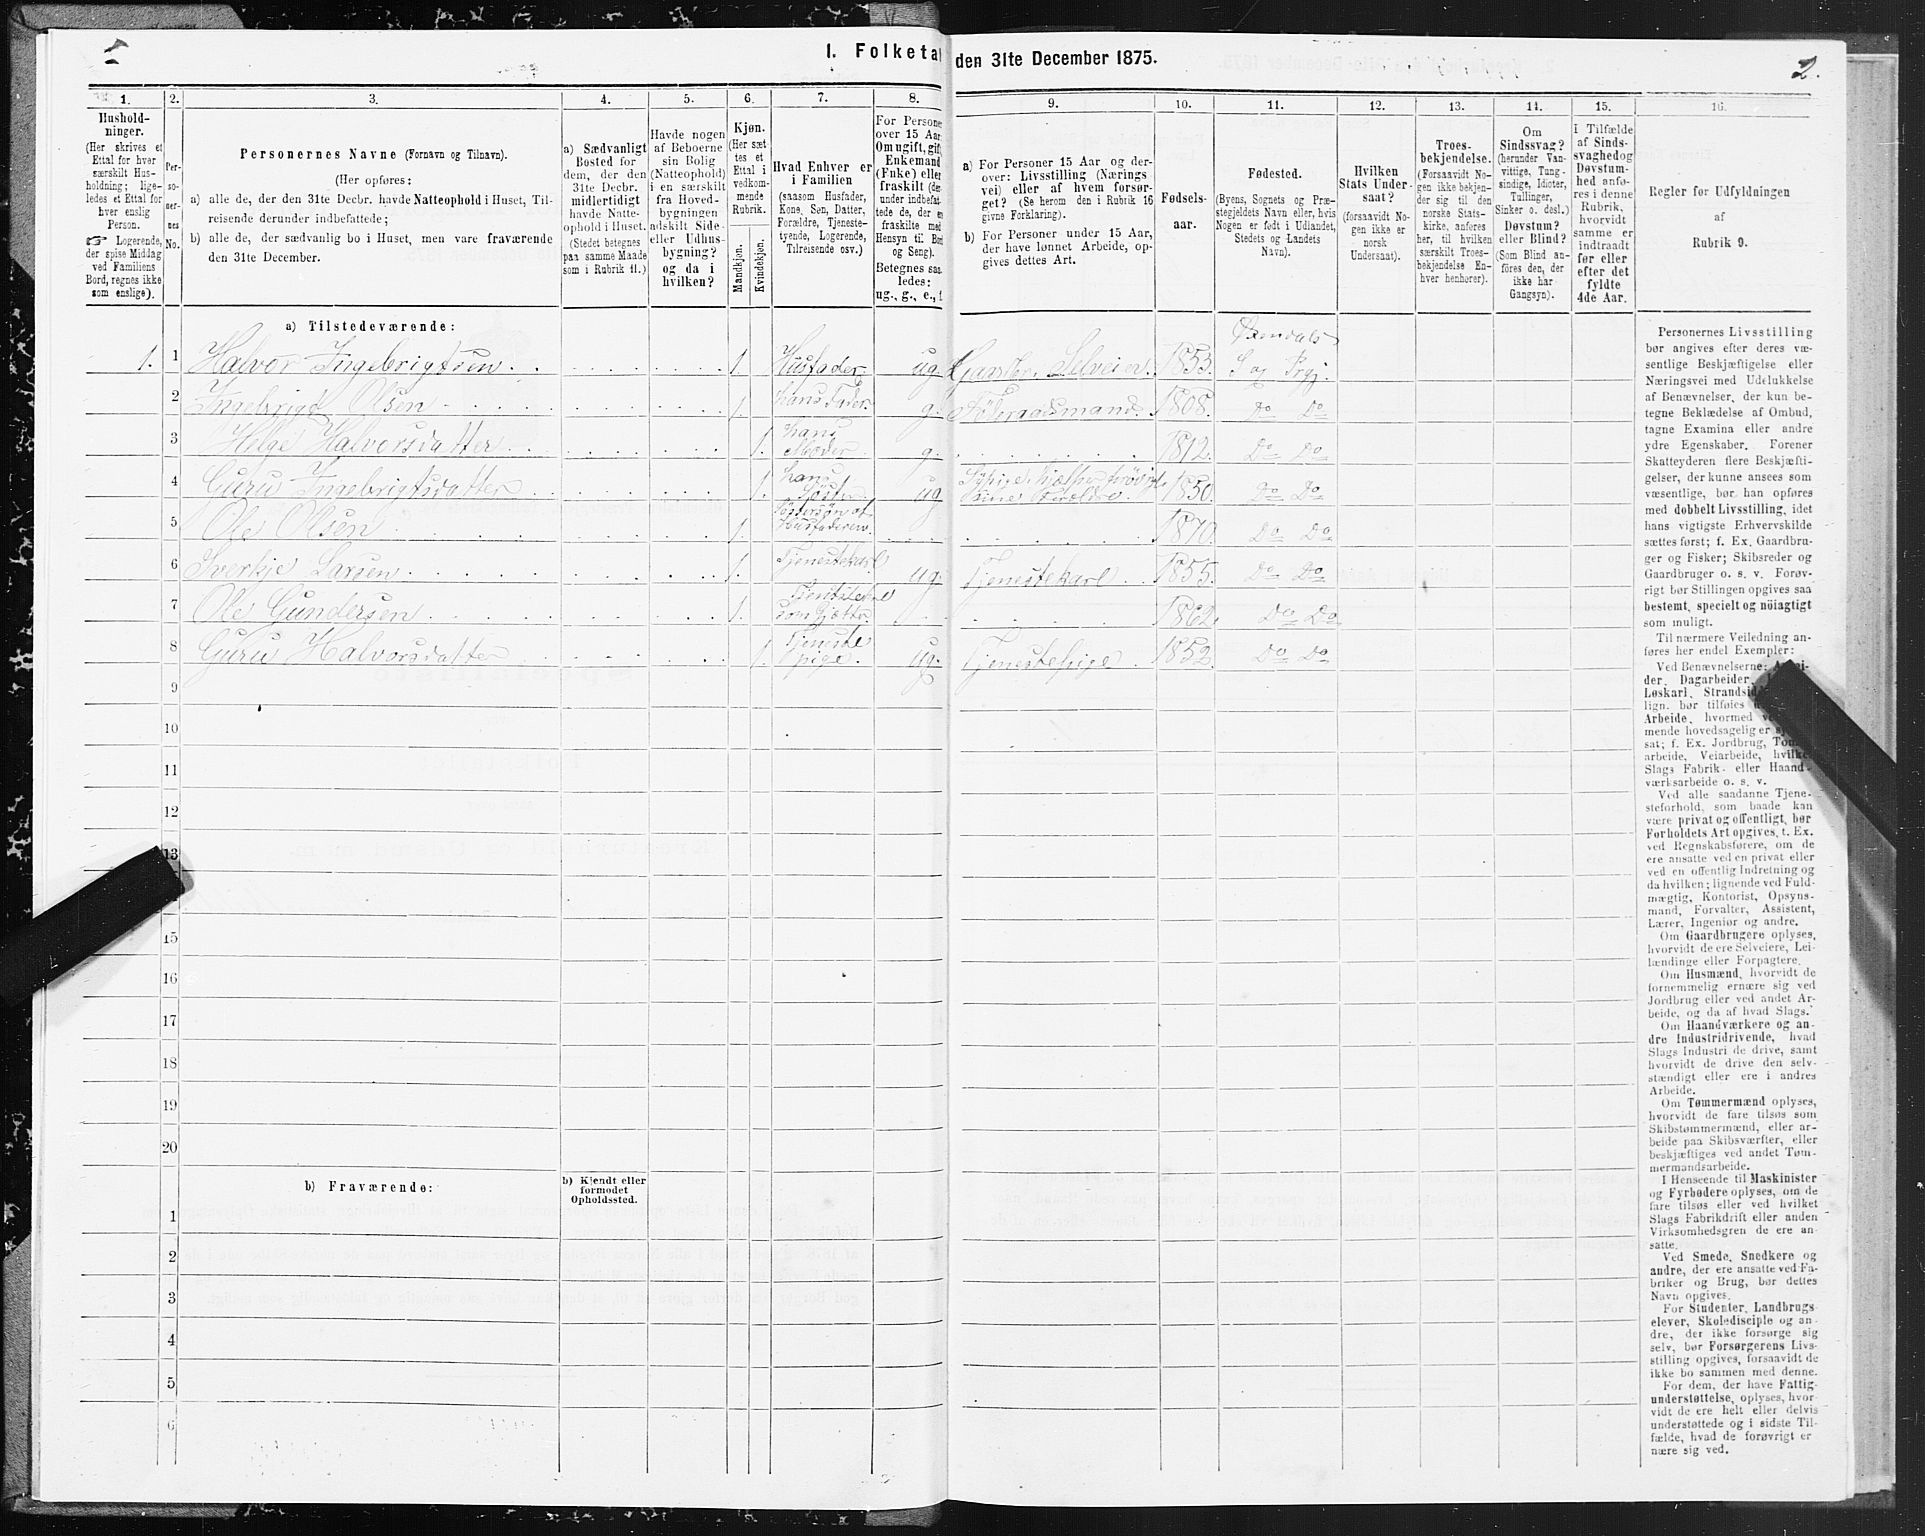 I. Folketal
den 31te December 1875.
2.
1.
Hushold-
ninger.
(Her skrives et
Ettal for hver
særskilt Hus-
holdning; lige-
ledes et Ettal for
hver enslig
Person.
☞ Logerende,
der spise Middag
ved Familiens
Bord, regnes ikke
som enslige).
2.
Per-
so-
ner-
nes
No.
3.
Personernes Navne (Fornavn og Tilnavn).
(Her opføres:
a) alle de, der den 31te Decbr. havde Natteophold i Huset, Til-
reisende derunder indbefattede;
b) alle de, der sædvanlig bo i Huset, men vare fraværende
den 31te December.
4.
a) Sædvanligt
Bosted for
dem, der den
31te Decbr.
midlertidigt
havde Natte-
ophold i Huset.
(Stedet betegnes
paa samme Maade
som i Rubrik 11.)
5.
Havde nogen
af Beboerne
sin Bolig
(Natteophold)
i en særskilt
fra Hoved-
bygningen
adskilt Side-
eller Udhus-
bygning?
og da i
hvilken?
6.
Kjøn.
(Her sæt
tes et
Ettal i
vedkom-
mende
Rubrik.
Mandkjøn.
Kvindekjøn.
7.
Hvad Enhver er
i Familien
(saasom Husfader,
Kone, Søn, Datter,
Forældre, Tjeneste-
tyende, Logerende,
Tilreisende osv.)
8.
For Persone
over 15 Aar
Om ugift, gif
Enkemand
(Enke) eller
fraskilt (de
under indbefat-
tede de, der e
fraskilte med
Hensyn til Bo
og Seng).
Betegnes saa
ledes:
ug., g., e., f.
9.
a) For Personer 15 Aar og der-
over: Livsstilling (Nærings
vei) eller af hvem forsør-
get? (Se herom den i Rubrik 16
givne Forklaring).
b) For Personer under 15 Aar,
der have lønnet Arbeide, op-
gives dettes Art.
10.
Fødsels-
aar.
11.
Fødested.
(Byens, Sognets og Præ-
stegjeldets Navn eller, hvis
Nogen er født i Udlandet,
Stedets og Landets
Navn).
12.
Hvilken
Stats Under-
saat?
(forsaavidt No-
gen ikke er
norsk
Undersaat).
13.
Troes-
bekjendelse.
(Forsaavidt No-
gen ikke bekjen-
der sig til den
norske Stats-
kirke, anføres
her, til hvilken
særskilt Troes-
bekjendelse En-
hver henhører).
14.
Om
Sindssvag?
(herunder Van-
vittige, Tung-
sindige, Idioter,
Tullinger,
Sinker o. desl.)
Døvstum?
eller Blind?
(Som Blind an-
føres den, der
ikke har
Gangsyn).
15.
I Tilfælde
af Sinds-
svaghed og
Døvstum-
hed anfø-
res i denne
Rubrik,
hvorvidt
samme er
indtraadt
før eller
efter det
fyldte
4de Aar.
16.
Regler for Udfyldningen
af
Rubrik 9.
a) Tilstedeværende:
Øxendals
1. 1 Halvor Ingebrigtsen. 1. Husfader ug. Gaardbr. Selveier. 1853. S og Prgj.
2 Ingebrigt Olsen 1. Hans Fader g. Føderaadsmand. 1808. Do Do
3 Helge Halvorsdatter 1. Hans Moder g. 1812. Do Do
4 Guru Ingebrigtsdatter 1. Hans Søster ug 1850. Do Do
5 Ole Olsen 1. Søstersøn af Husfaderen 1870. Do Do
6 Sverkje Larsen 1. Tjenestekarl ug. Tjenestekarl 1855. Do Do
7 Ole Gundersen 1. som Gjætter 1862. Do Do
8 Guru Halvorsdatter 1. Tjeneste pige. ug. Tjenestepige 1852 Do Do
9
10
11
12
13
15
16
17
18
19
20
b) Fraværende:
b) Kjendt eller
formodet
Opholdssted.
1
2
3
4
5
6
Personernes Livsstilling
bør angives efter deres væ-
sentlige Beskjæftigelse eller
Næringsvei med Udelukkelse
af Benævnelser, der kun be-
tegne Beklædelse af Ombud,
tagne Examina eller andre
ydre Egenskaber. Forener
Skatteyderen flere Beskjæfti-
gelser, der kunne ansees som
væsentlige, bør han opføres
med dobbelt Livsstilling, idet
hans vigtigste Erhvervskilde
sættes først; f. Ex. Gaardbru-
ger og Fisker; Skibsreder og
Gaardbruger o. s. v. Forøv-
rigt bør Stillingen opgives saa
bestemt, specielt og nøiagtigt
som muligt.
Til nærmere Veiledning an-
føres her endel Exempler:
Ved Benævnelserne:
der, Dagarbeider,
Løskarl, Strandsid
lign. bør tilføies
Arbeide, hvormed
mende hovedsagelig er
sat; f. Ex. Jordbrug,
arbeide, Veiarbeide, hvilke
Slags Fabrik- eller Haand-
værksarbeide o. s. v.
Ved alle saadanne Tjene-
steforhold, som baade kan
være privat og offentligt, bør
Forholdets Art opgives, t. Ex.
ved Regnskabsførere, om de
ere ansatte ved en privat eller
ved en offentlig Indretning og
da hvilken; lignende ved Fuld-
mægtig, Kontorist, Opsyns-
mand, Forvalter, Assistent,
Lærer, Ingeniør og andre.
Om Gaardbrugere oplyses,
hvorvidt de ere Selveiere, Lei-
lændinge eller Forpagtere.
Om Husmænd, hvorvidt de
fornemmelig ernære sig ved
Jordbrug eller ved andet Ar-
beide, og da af hvad Slags.
Om Haandværkere og an-
dre Industridrivende, hvad
Slags Industri de drive, samt
hvorvidt de drive den selv-
stændigt eller ere i andres
Arbeide.
Om Tømmermænd oplyses,
hvorvidt de fare tilsøs som
Skibstømmermænd, eller ar-
beide paa Skibsværfter, eller
beskjæftiges ved andet Tøm-
mermandsarbeide.
I Henseende til Maskinister
og Fyrbødere oplyses, om de
fare tilsøs eller ved hvilket
Slags Fabrikdrift eller anden
Virksomhedsgren de ere an-
satte.
Ved Smede, Snedkere og
andre, der ere ansatte ved Fa-
briker og Brug, bør dettes
Navn opgives.
For Studenter, Landbrugs-
elever, Skoledisciple og an-
dre, der ikke forsørge sig
selv, bør Forsørgerens Livs-
stilling opgives, forsaavidt de
ikke bo sammen med denne.
For dem, der have Fattig-
understøttelse, oplyses, hvor-
vidt de ere helt eller delvis
understøttede og i sidste Til-
fælde, hvad de forøvrigt er
nære sig ved.